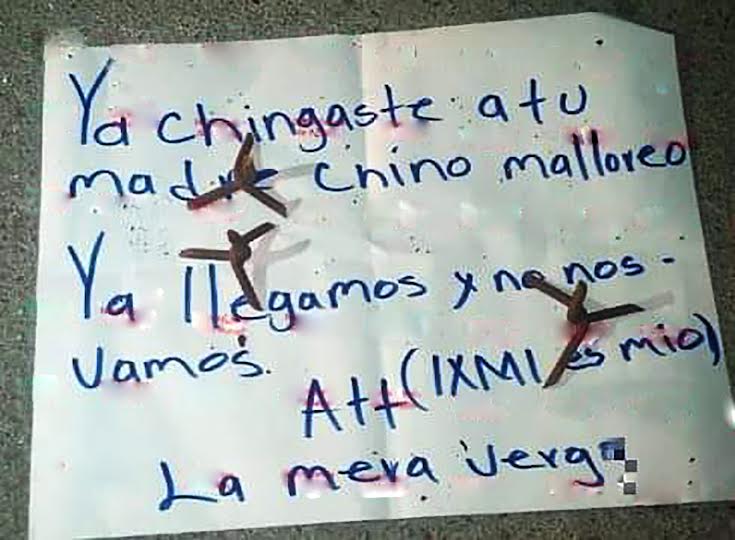 Ya chingaste a tu
madre chino malloreo
Ya llegamos y no nos-
vamos.
Att (IXMI es mio)
La mera verga